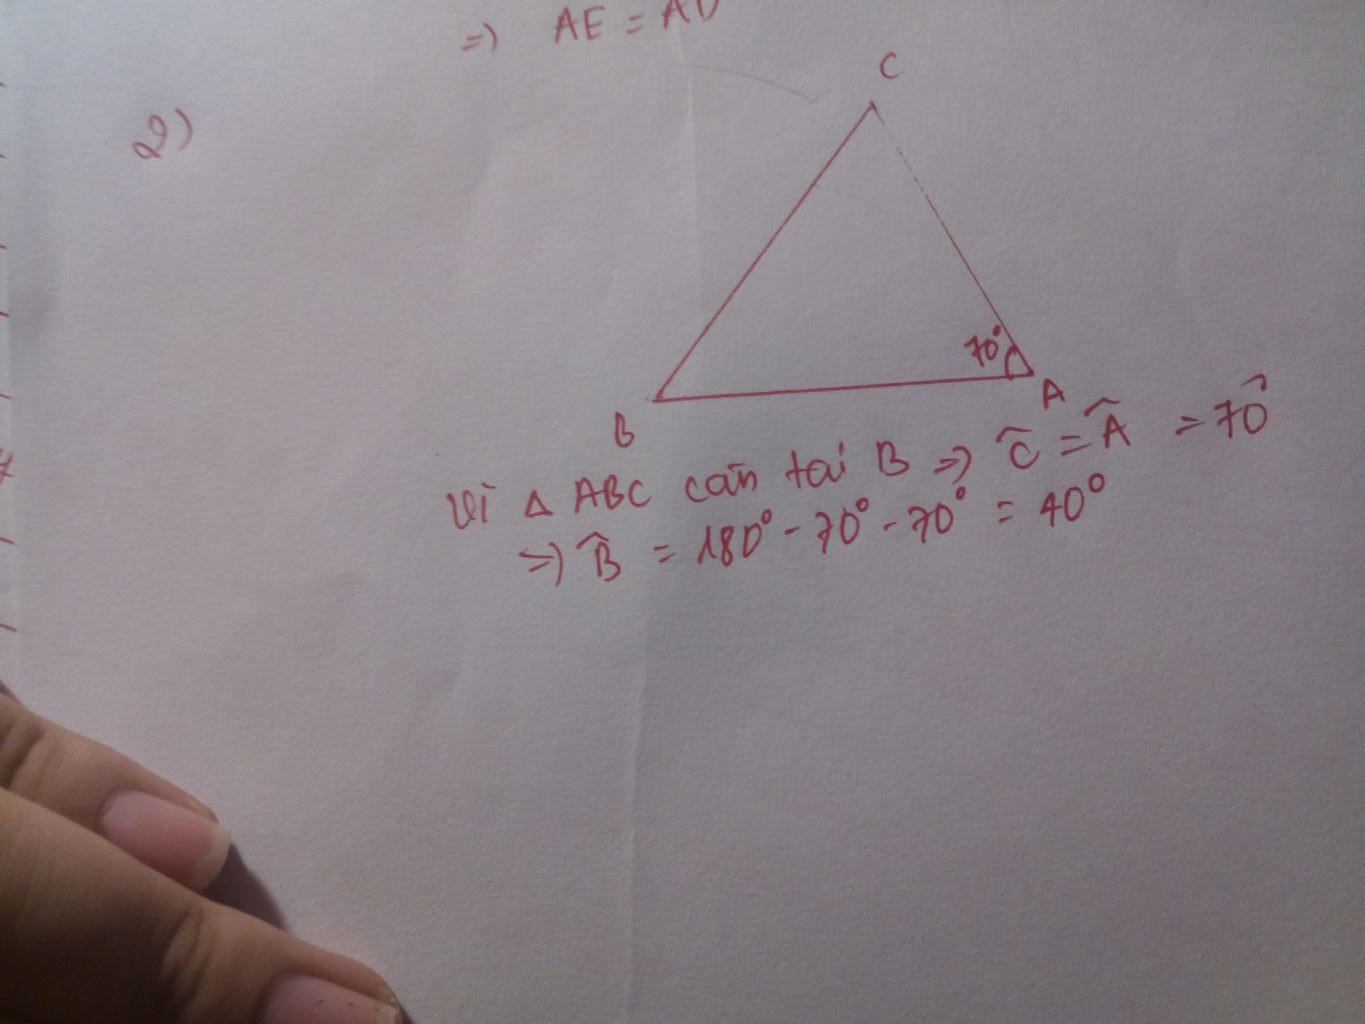 =) AE = AD
2)
C
70°
B
A
Vì Δ ABC cân tại B =) Ĉ = Â = 70°
=) B̂ = 180° - 70° - 70° = 40°